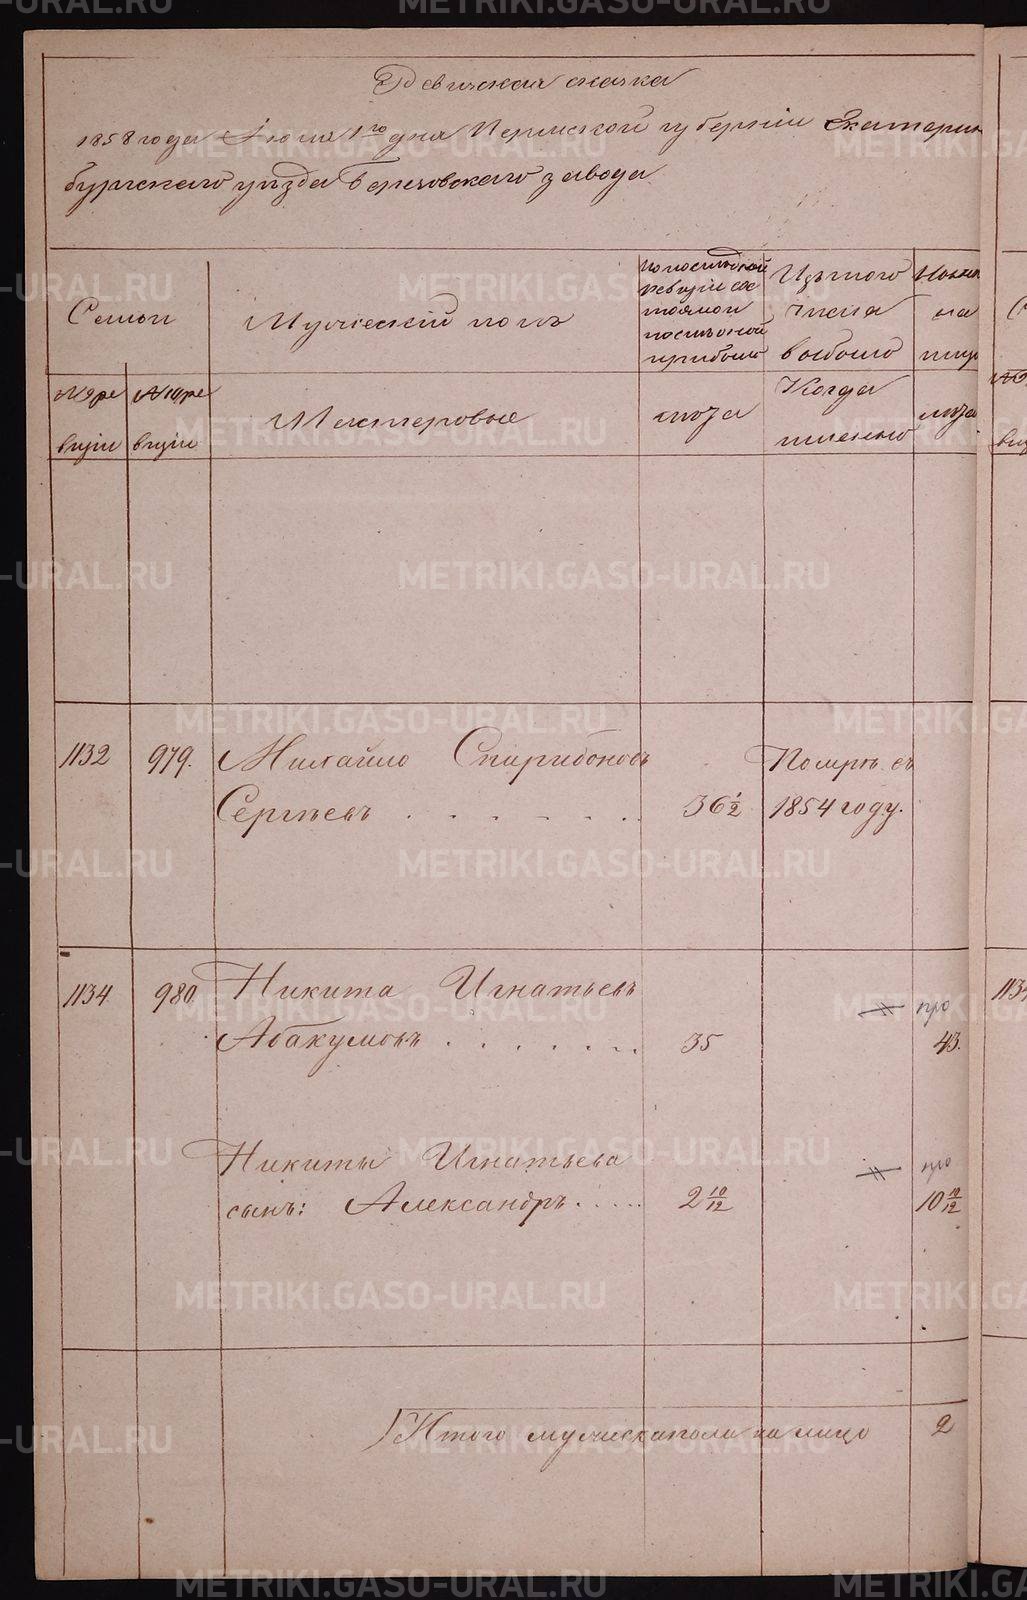 Ревижская сказка
1858 года Июня 1го дня Пермской губернии Екатерин
бургскаго уезда Березовскаго завода
Семьи
Мужеский полъ
По последней
ревизии со
стояло и
после оной
прибыло
Изъ того
числа
выбыло
Ныне
на
лицо
№ 9 ре
визии
№ 10 ре
визии
Мастеровые
лета
Когда
именно
лета
1132
979.
Михайло Спиридоновъ
Сергѣевъ . . . . . . .
36 1/2
Помръ въ
1854 году.
1134
980
Никита Игнатьевъ
Абакумовъ . . . . . . .
35
про
43.
Никиты Игнатьева
сынъ: Александръ . . . . .
2 10/12
про
10 10/12
Итого мужеска пола на лицо
2
METRIKI.GASO-URAL.RU